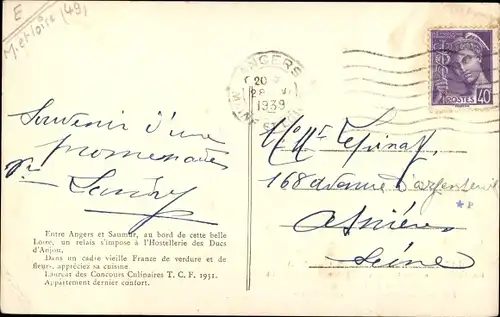 E
M. et Loire (49)
ANGERS
20
28 VI
1939
POSTES 40
Souvenir d'une
promenade
Mr Mme
168 avenue d'argenteuil
Asnières
Seine
Entre Angers et Saumur, au bord de cette belle
Loire, un relais s'impose à l'Hostellerie des Ducs
d'Anjou.
Dans un cadre vieille France de verdure et de
fleurs, appréciez sa cuisine.
Lauréat des Concours Culinaires T. C. F. 1931.
Appartement dernier confort.